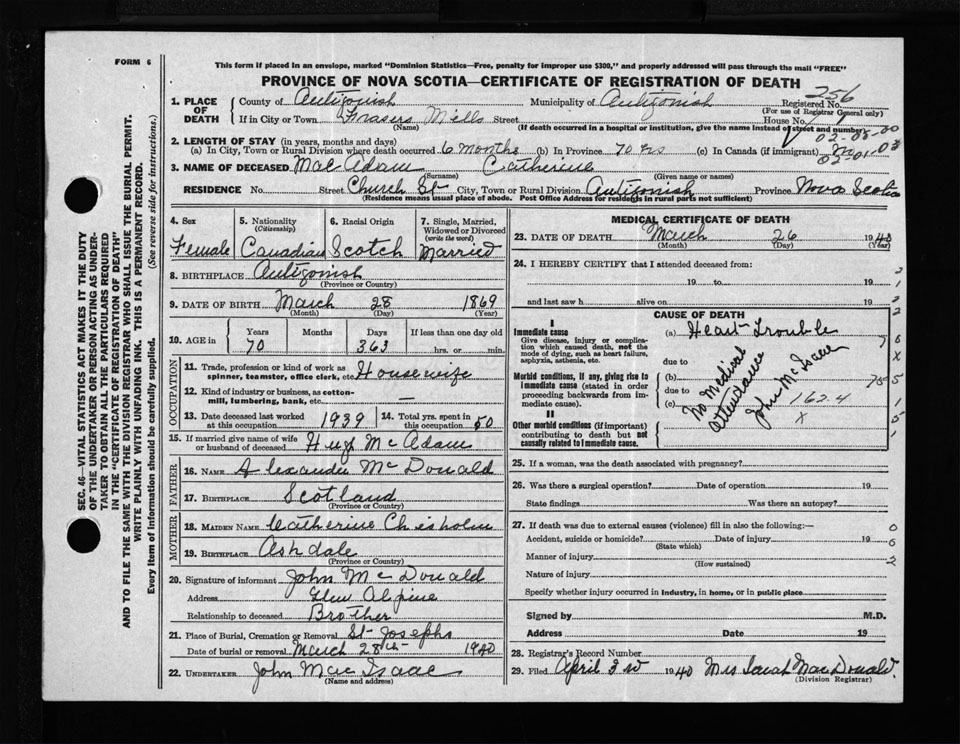 FORM 6
This form if placed in an envelope, marked "Dominion Statistics—Free, penalty for improper use $300," and properly addressed will pass through the mail "FREE"
PROVINCE OF NOVA SCOTIA—CERTIFICATE OF REGISTRATION OF DEATH
256
1. PLACE OF DEATH County of Antigonish Municipality of Antigonish Registered No.
(For use of Registrar General only)
If in City or Town Frasers Mills Street House No.
(Name) (If death occurred in a hospital or institution, give the name instead of street and number)
02-08-00
2. LENGTH OF STAY (in years, months and days)
(a) In City, Town or Rural Division where death occurred 6 months (b) In Province 70 yrs (c) In Canada (if immigrant)
02-01-03
3. NAME OF DECEASED Mac Adam Catherine
(Surname) (Given name or names)
RESIDENCE No. Street Church St City, Town or Rural Division Antigonish Province Nova Scotia
(Residence means usual place of abode. Post Office Address for residents in rural parts not sufficient)
4. Sex 5. Nationality (Citizenship) 6. Racial Origin 7. Single, Married, Widowed or Divorced (write the word)
Female Canadian Scotch Married
8. BIRTHPLACE Antigonish
(Province or County)
9. DATE OF BIRTH March 28 1869
(Month) (Day) (Year)
10. AGE in Years Months Days If less than one day old
70 363 hrs. or min.
OCCUPATION
11. Trade, profession or kind of work as spinner, teamster, office clerk, etc. Housewife
12. Kind of industry or business, as cotton-mill, lumbering, bank, etc. —
13. Date deceased last worked at this occupation 1939 14. Total yrs. spent in this occupation 50
15. If married give name of wife or husband of deceased Hugh McAdam
FATHER
16. NAME Alexander McDonald
17. BIRTHPLACE Scotland
(Province or County)
MOTHER
18. MAIDEN NAME Catherine Chisholm
19. BIRTHPLACE Ashdale
(Province or Country)
20. Signature of informant John McDonald
Address Glen Alpine
Relationship to deceased Brother
21. Place of Burial, Cremation or Removal St Josephs
Date of burial or removal March 28th 1940
22. UNDERTAKER John Mac Isaac
(Name and address)
MEDICAL CERTIFICATE OF DEATH
23. DATE OF DEATH March 26 1940
(Month) (Day) (Year)
24. I HEREBY CERTIFY that I attended deceased from:
19 to 19
and last saw h alive on 19
CAUSE OF DEATH
I
Immediate cause (a) Heart Trouble
Give disease, injury or complication which caused death, not the mode of dying, such as heart failure, asphyxia, asthenia, etc.
due to
Morbid conditions, if any, giving rise to immediate cause (stated in order proceeding backwards from immediate cause).
(b)
due to
(c) 162.4
No Medical attendance
John McIsaac
II
Other morbid conditions (if important) contributing to death but not causally related to immediate cause.
x
25. If a woman, was the death associated with pregnancy?
26. Was there a surgical operation? Date of operation 19
State findings Was there an autopsy?
27. If death was due to external causes (violence) fill in also the following:—
Accident, suicide or homicide? Date of injury 19
(State which)
Manner of injury
(How sustained)
Nature of injury
Specify whether injury occurred in industry, in home, or in public place
Signed by M.D.
Address Date 19
28. Registrar's Record Number
29. Filed April 3rd 1940 Mrs Sarah MacDonald.
(Division Registrar)
SEC. 46—VITAL STATISTICS ACT MAKES IT THE DUTY
OF THE UNDERTAKER OR PERSON ACTING AS UNDER-
TAKER TO OBTAIN ALL THE PARTICULARS REQUIRED
IN THE "CERTIFICATE OF REGISTRATION OF DEATH"
AND TO FILE THE SAME WITH THE DIVISION REGISTRAR WHO SHALL ISSUE THE BURIAL PERMIT.
WRITE PLAINLY WITH UNFADING INK. THIS IS A PERMANENT RECORD.
Every item of information should be carefully supplied. (See reverse side for instructions.)